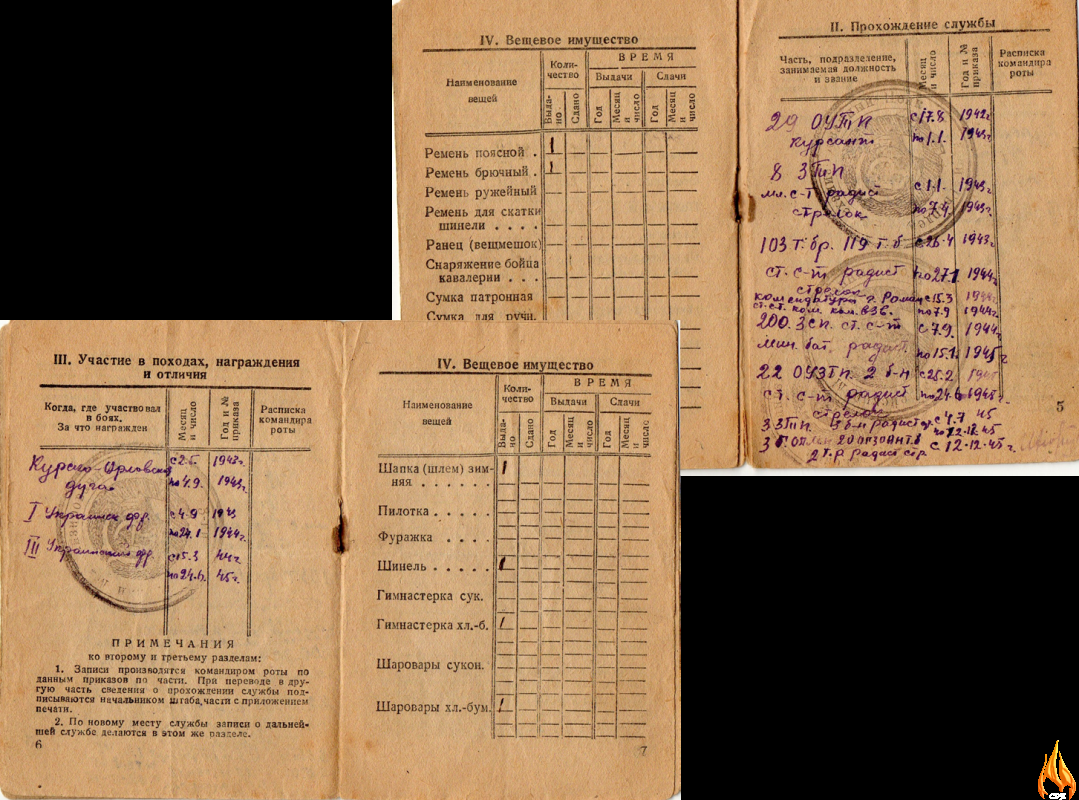 IV. Вещевое имущество
Наименование вещей
Коли-
чество
ВРЕМЯ
Выдачи
Сдачи
Выда-
но
Сдано
Год
Месяц и число
Год
Месяц и число
Ремень поясной . 1
Ремень брючный . 1
Ремень ружейный
Ремень для скатки
шинели . . . .
Ранец (вещмешок)
Снаряжение бойца
кавалерии . . .
Сумка патронная
Сумка для ручн.
II. Прохождение службы
Часть, подразделение,
занимаемая должность
и звание
Месяц и число
Год и № приказа
Расписка
командира
роты
29 ОУТП с 17.8 1942г
курсант по 1.1. 1943г
8 ЗТП
мл. с-т радист с 1.1. 1943г.
стрелок по 7.4 1943г.
103 т. бр. 119 т. б с 26.4 1943г.
ст. с-т радист по 27.1 1944г
стрелок
комендатура г. Роман с 15.3 1944г
по 7.9 1944г
200. ЗСП. ст. с-т с 7.9. 1944г
мин. бат. радист по 15.1. 1945г
22 ОУЗТП. 2 б-н с 25.2 1945
ст. с-т радист по 24.6 1945г.
стрелок
3 ЗТП. 3 б-н радист с 4.7 45
по 12.12.45
с 12.12.45г.
2 т.р. радист стр.
5
III. Участие в походах, награждения
и отличия
Когда, где участвовал
в боях.
За что награжден
Месяц и число
Год и № приказа
Расписка
командира
роты
Курско-Орловская с 2.5. 1943г.
дуга по 4.9. 1943г.
I Украинск фр. с 4.9 1943
по 24.1 1944г.
III Украинский фр. с 15.3 44г.
по 24.6. 45г.
ПРИМЕЧАНИЯ
ко второму и третьему разделам:
1. Записи производятся командиром роты по
данным приказов по части. При переводе в дру-
гую часть сведения о прохождении службы под-
писываются начальником штаба части с приложением
печати.
2. По новому месту службы записи о дальней-
шей службе делаются в этом же разделе.
6
IV. Вещевое имущество
Наименование
вещей
Коли-
чество
ВРЕМЯ
Выдачи
Сдачи
Выда-
но
Сдано
Год
Месяц и число
Год
Месяц и число
Шапка (шлем) зим- 1
няя . . . . . .
Пилотка . . . . .
Фуражка . . . .
Шинель . . . . . 1
Гимнастерка сук.
Гимнастерка хл.-б. 1
Шаровары сукон.
Шаровары хл.-бум. 1
7